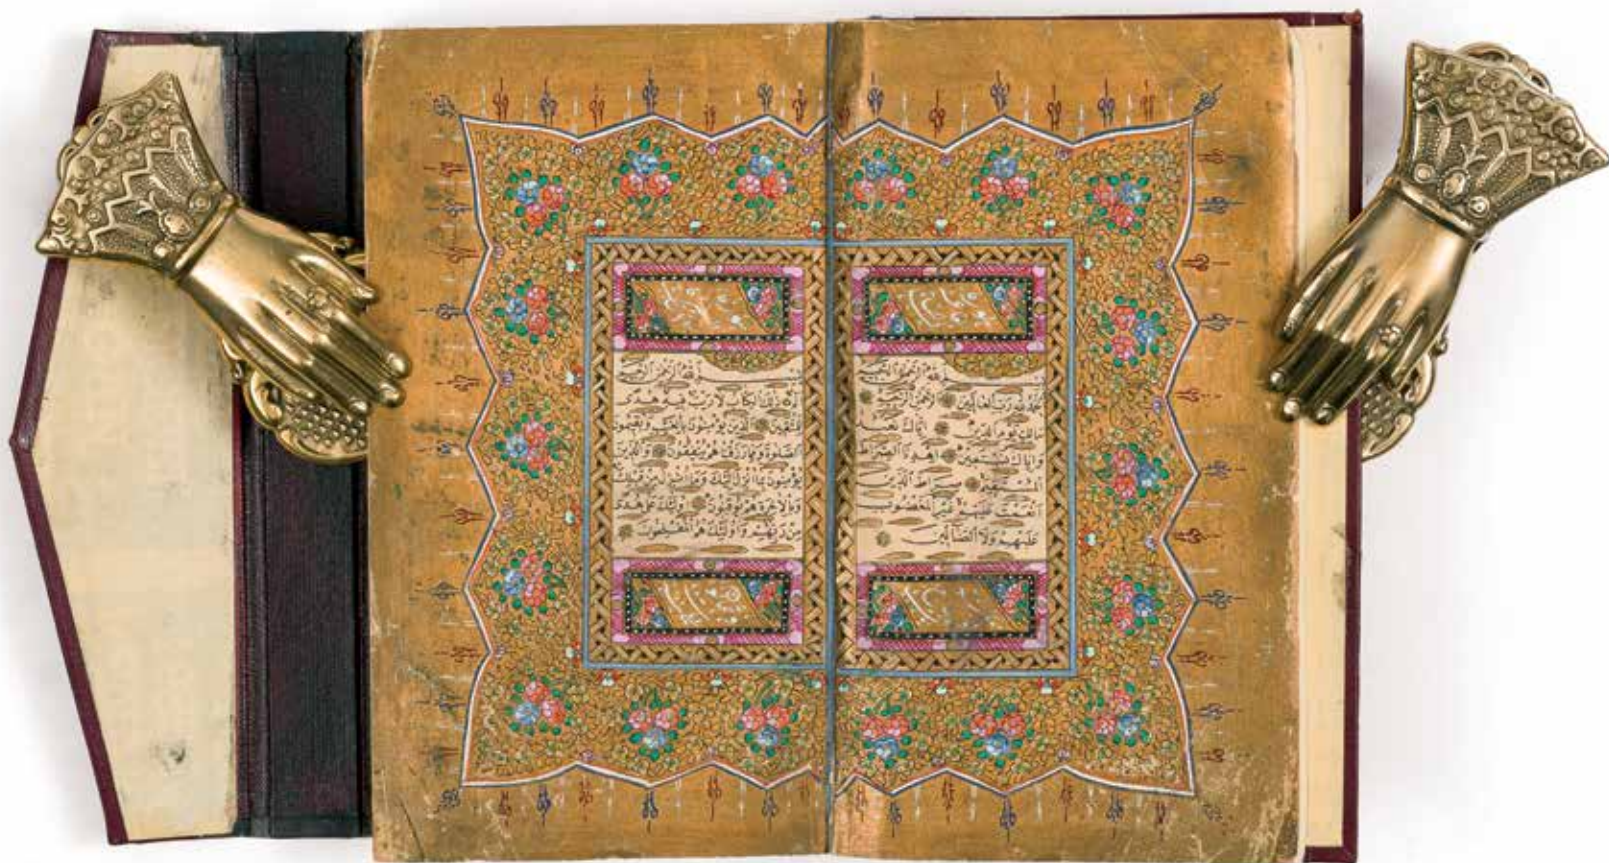 بسم الله الرحمن الرحيم
الحمد لله رب العالمين الرحمن الرحيم
مالك يوم الدين اياك نعبد
واياك نستعين اهدنا الصراط
المستقيم صراط الذين
انعمت عليهم غير المغضوب
عليهم ولا الضالين
بسم الله الرحمن الرحيم
الم ذلك الكتاب لا ريب فيه هدى
للمتقين الذين يؤمنون بالغيب ويقيمون
الصلوة ومما رزقناهم ينفقون والذين
يؤمنون بما انزل اليك وما انزل من قبلك
وبالاخرة هم يوقنون اولئك على هدى
من ربهم واولئك هم المفلحون